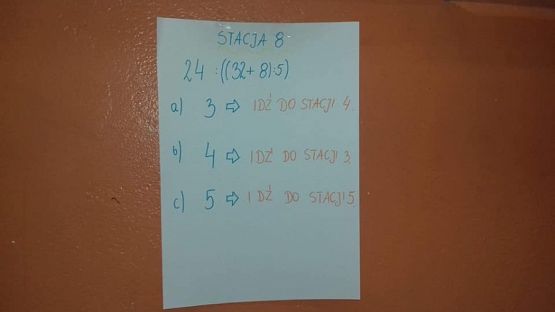 STACJA 8
24 :((32+8):5)
a) 3 ⇨ IDŹ DO STACJI 4.
b) 4 ⇨ IDŹ DO STACJI 3.
c) 5 ⇨ IDŹ DO STACJI 5.